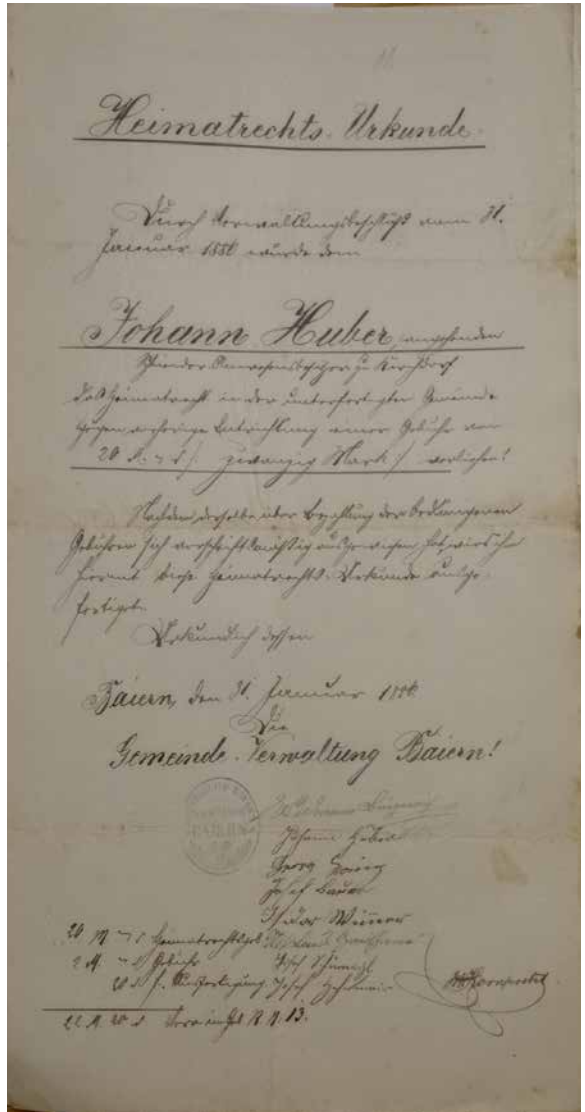 Heimatrechts-Urkunde.
Durch Verwaltungsbeschluß vom 31.
Januar 1880 wurde dem
Johann Huber, angehenden
Anwesensbesitzer zu Kirchdorf
das Heimatrecht in der unterfertigten Gemeinde
gegen vorherige Entrichtung einer Gebühr von
20 M. zwanzig Mark verliehen!
Nachdem derselbe über Bezahlung der bedungenen
Gebühren sich vorschriftsmäßig ausgewiesen hat, wird ihm
hiermit diese Heimatrechts-Urkunde ausge-
fertigt.
Urkundlich dessen
Baiern, den 31. Januar
Die
Gemeinde-Verwaltung Baiern!
BAIERN
Johann Huber
Georg
Josef Bauer
20 M Heimatrechtsgeb.
2 M. Gebühr Josef
20 f. Ausfertigung Josef
22 M 20 13.